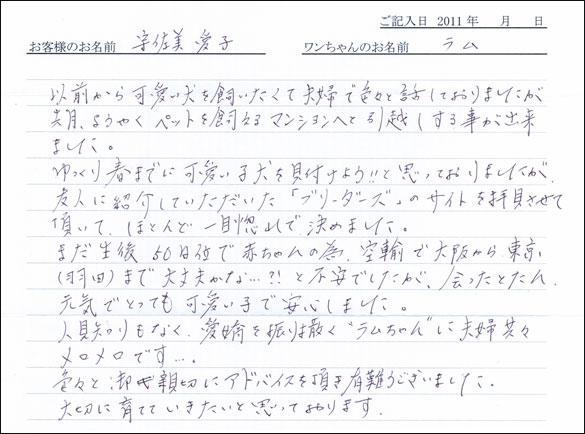 ご記入日 2011年 月 日
お客様のお名前 宇佐美 愛子 ワンちゃんのお名前 ラム
以前から可愛い犬を飼いたくて夫婦で色々と話しておりましたが
先月、ようやくペットを飼えるマンションへと引越しする事が出来
ました。
ゆっくり春までに可愛い子犬を見付けよう!!と思っておりましたが、
友人に紹介していただいた「ブリーダーズ」のサイトを拝見させて
頂いて、ほとんど一目惚れで決めました。
まだ生後50日位で赤ちゃんの為、空輸で大阪から東京
(羽田)まで大丈夫かな…?!と不安でしたが、会ったとたん、
元気でとっても可愛い子で安心しました。
人見知りもなく、愛嬌を振り撒く“ラムちゃん”に夫婦共々
メロメロです…。
色々と御親切にアドバイスを頂き有難うございました。
大切に育てていきたいと思っております。